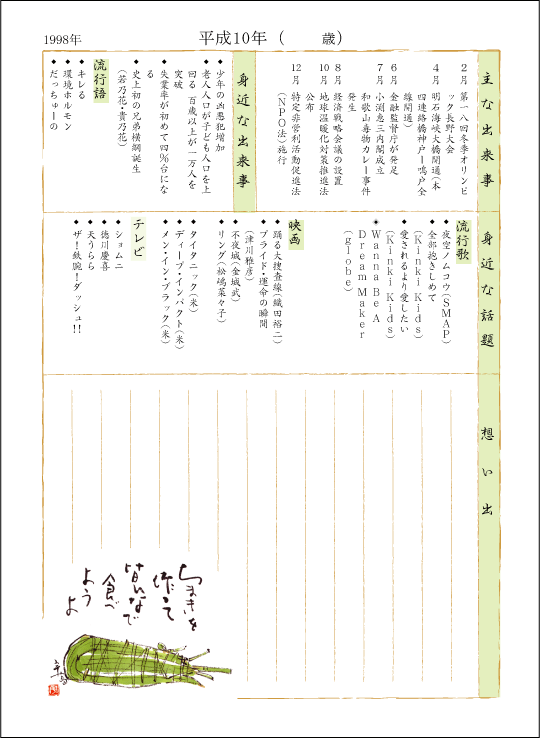 1998年
平成10年（　　歳）
主な出来事
2月　第一八回冬季オリンピ
ック長野大会
4月　明石海峡大橋開通（本
四連絡橋神戸ー鳴戸全
線開通）
6月　金融監督庁が発足
7月　小渕恵三内閣成立
和歌山毒物カレー事件
発生
8月　経済戦略会議の設置
10月　地球温暖化対策推進法
公布
12月　特定非営利活動促進法
（NPO法）施行
身近な出来事
◆少年の凶悪犯増加
◆老人人口が子ども人口を上
回る　百歳以上が一万人を
突破
◆失業率が初めて四％台にな
る
◆史上初の兄弟横綱誕生
（若乃花・貴乃花）
流行語
◆キレる
◆環境ホルモン
◆だっちゅーの
身近な話題
流行歌
◆夜空ノムコウ（SMAP）
◆全部抱きしめて
（Kinki Kids）
◆愛されるより愛したい
（Kinki Kids）
◆Wanna Be A
Dream Maker
（globe）
映画
◆踊る大捜査線（織田裕二）
◆プライド・運命の瞬間
（津川雅彦）
◆不夜城（金城武）
◆リング（松嶋菜々子）
◆タイタニック（米）
◆ディープ・インパクト（米）
◆メン・イン・ブラック（米）
テレビ
◆ショムニ
◆徳川慶喜
◆天うらら
◆ザ！鉄腕！ダッシュ！！
想い出
ちまきを
作って
皆んなで
食べ
よう
よ